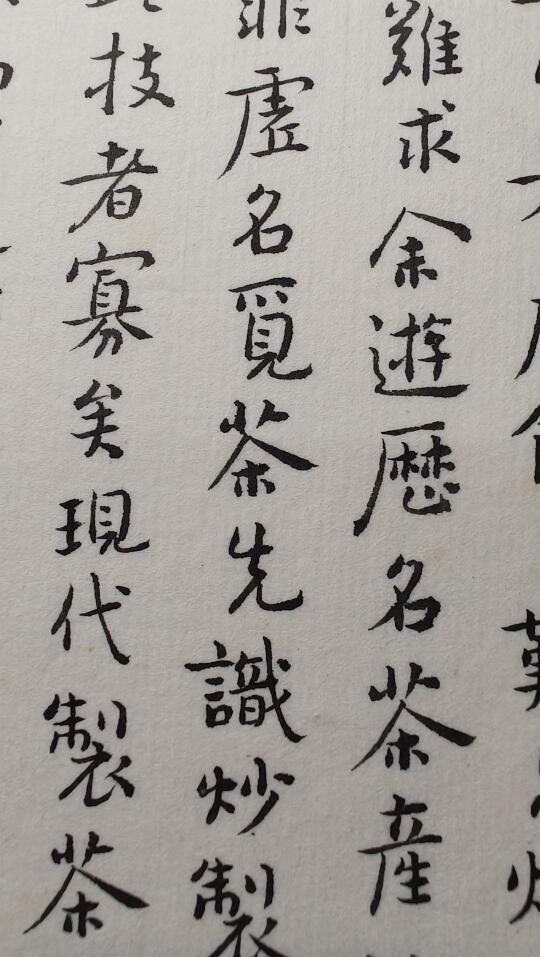 難求余遊歷名茶產
非虛名覓茶先識炒製
技者寡矣現代製茶